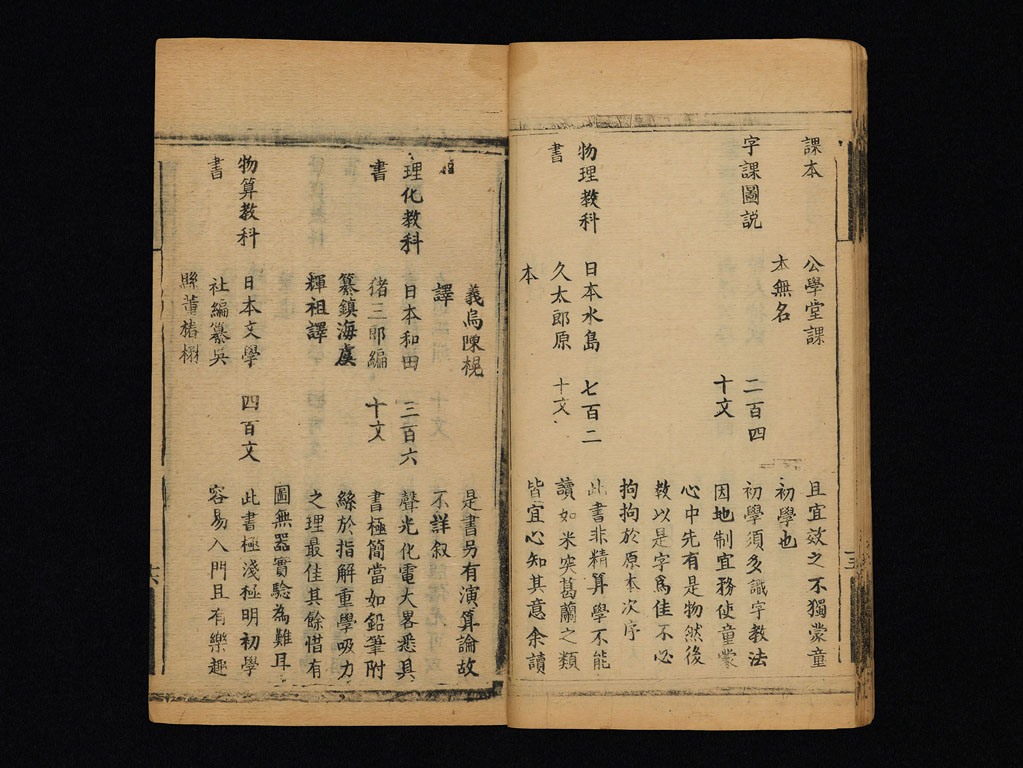 課本
公學堂課
本無名
且宜效之不獨蒙童
初學也
字課圖説
二百四
十文
初學須多識字教法
因地制宜務使童蒙
心中先有是物然後
教以是字爲佳不必
拘拘於原本次序
物理教科
書
日本水島
久太郎原
本
七百二
十文
此書非精算學不能
讀如米突葛蘭之類
皆宜心知其意余讀
義烏陳榥
譯
是書另有演算論故
不詳叙
理化教科
書
日本和田
猪三郎編
纂鎮海虞
輝祖譯
三百六
十文
聲光化電大畧悉具
書極簡當如鉛筆附
絲於指解重學吸力
之理最佳其餘惜有
圖無器實驗為難耳
物算教科
書
日本文學
社編纂吳
縣董
四百文
此書極淺極明初學
容易入門且有樂趣
六